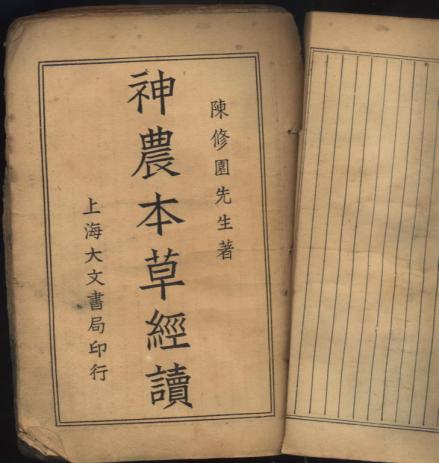 陳修園先生著
神農本草經讀
上海大文書局印行